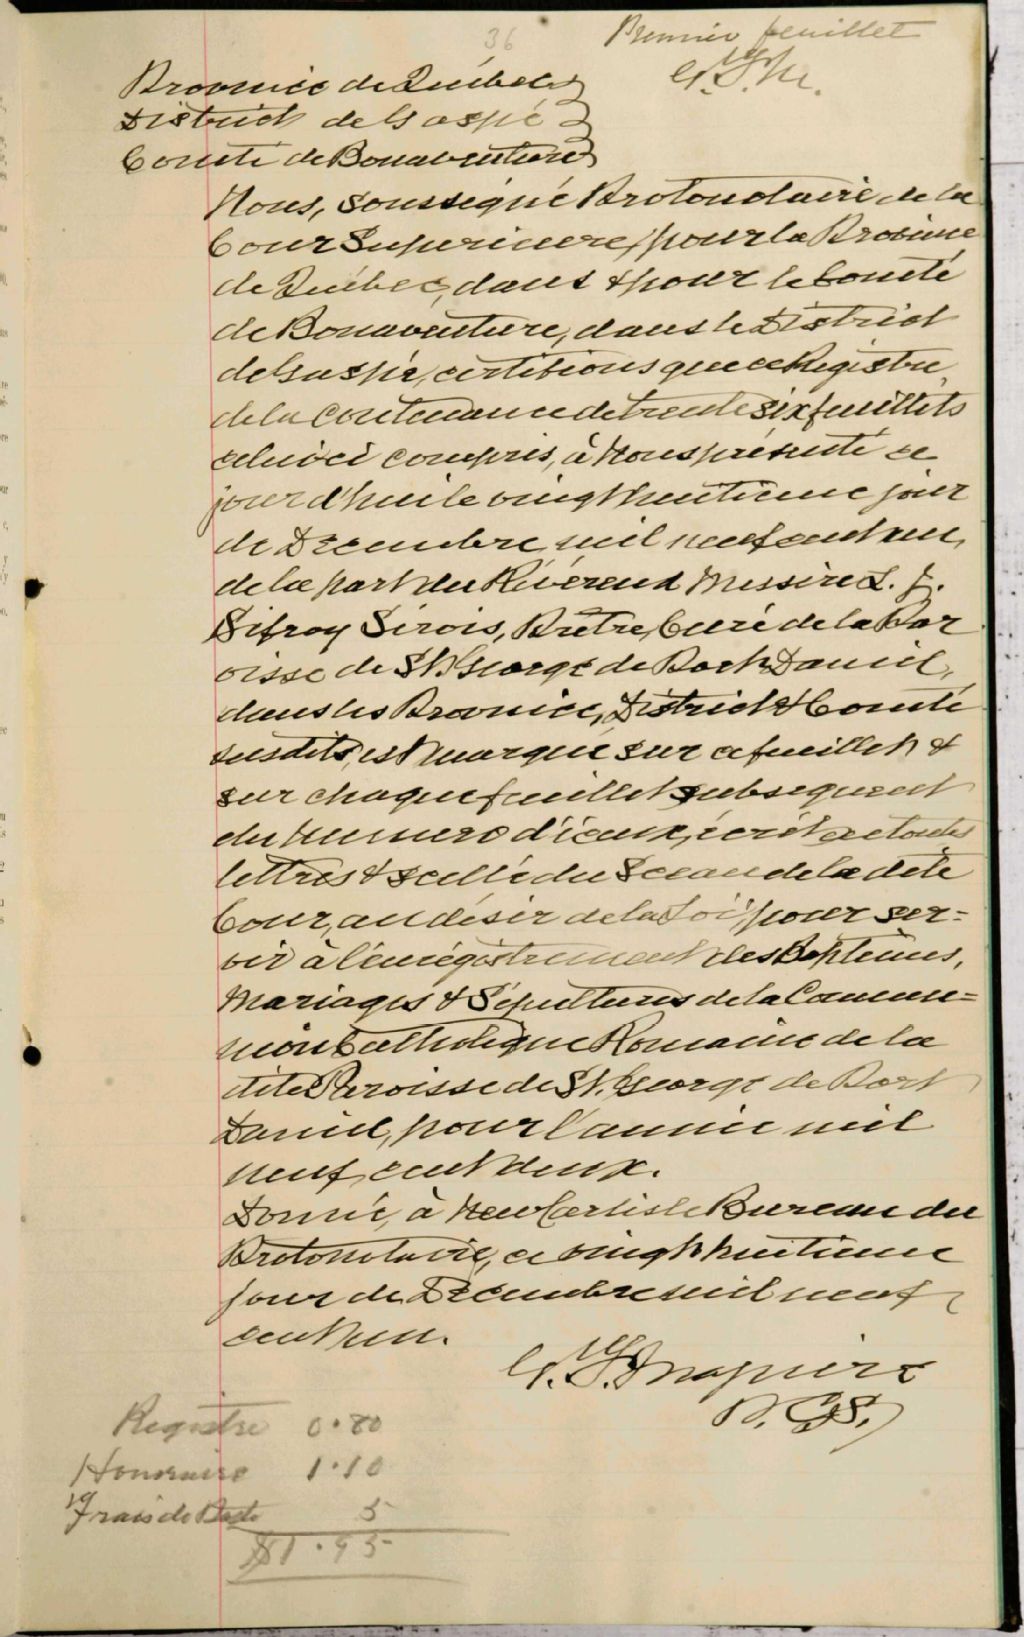 36
Premier feuillet
Province de Québec
District de Gaspé
Comté de Bonaventure
Nous, Soussigné Protonotaire de la
Cour Superieure, pour la Province
de Québec, dans & pour le Comté
de Bonaventure, dans le District
de Gaspé, certifions que ce Registre,
de la contenance de trente six feuillets
celui ci compris, à Nous présenté ce
jour d'hui le vingt huitieme jour
de Décembre mil neuf cent un,
de la part du Révérend Messire L. J.
Sifroy Sirois, Prêtre, Curé de la Par
oisse de St. George de Port Daniel,
dans les Province, District & Comté
susdits, est marqué sur ce feuillet &
sur chaque feuillet subsequent
du Numero d'iceux, écrit en toutes
lettres & scellé du Sceau de la dite
Cour, au désir de la Loi, pour ser=
vir à l'enrégistrement des Baptêmes,
Mariages & Sépultures de la Commu=
nion Catholique Romaine de la
dite Paroisse de St. George de Port
Daniel, pour l'année mil
neuf cent deux.
Donné, à New Carlisle Bureau du
Protonotaire, ce vingt huitieme
jour de Décembre mil neuf
cent un.
P. C. S.
Registre 0.80
Honoraire 1.10
Frais de Poste 5
$1.95